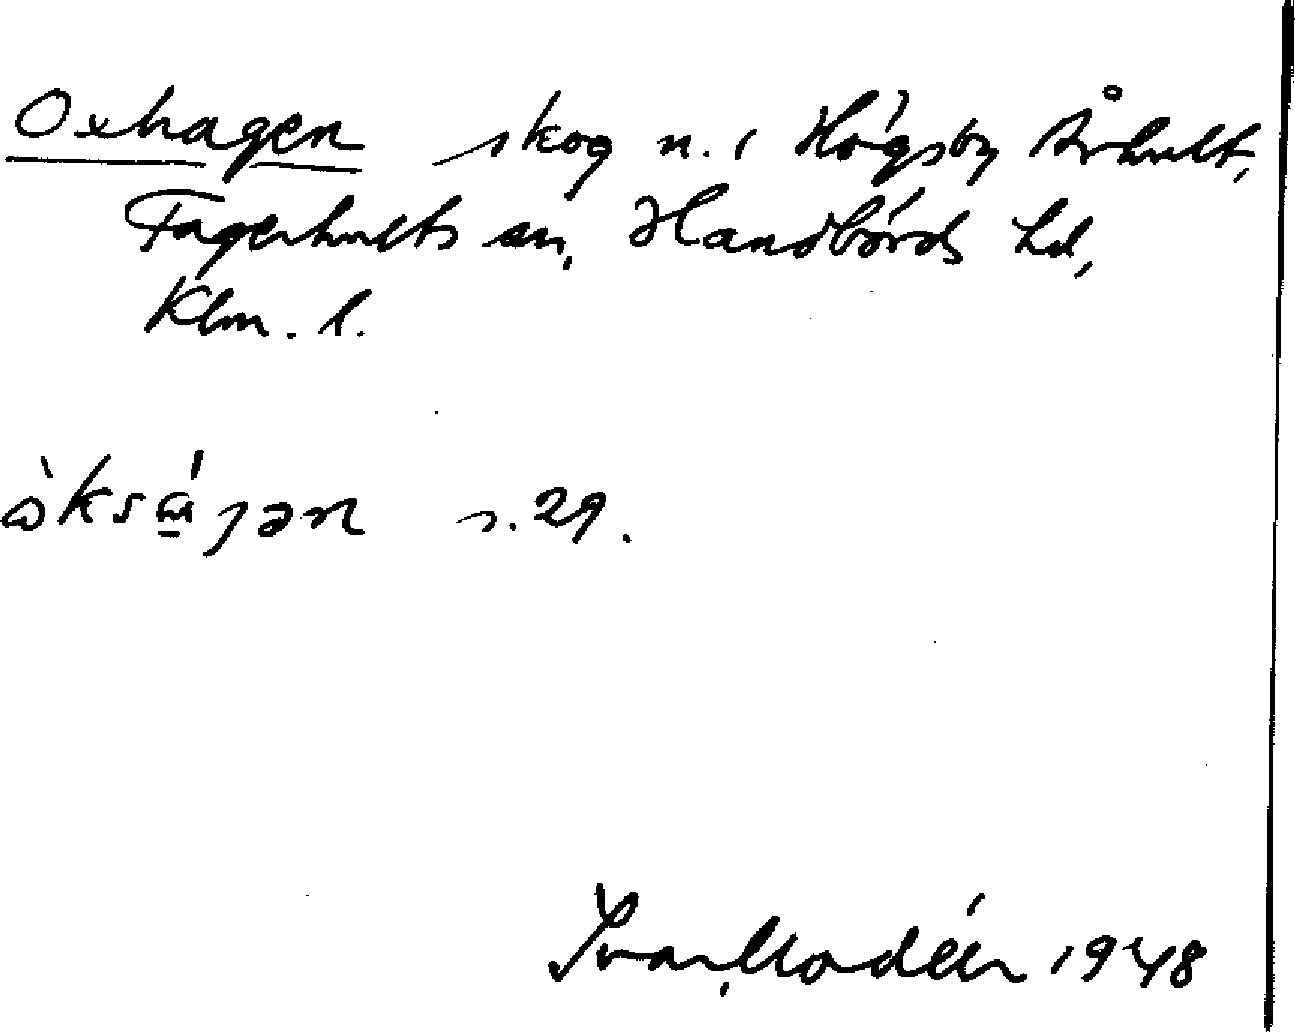 Oxhagen skog n. i Högsby Århult,
Fagerhults sn, Handbörds hd,
Klm. l.
s. 29.
Ivar Modéer 1948